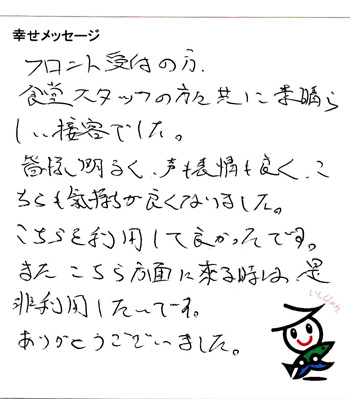 幸せメッセージ
フロント受付の方、
食堂スタッフの方々共に素晴ら
しい接客でした。
皆様明るく、声も表情も良く、こ
ちらも気持ちが良くなりました。
こちらを利用して良かったです。
またこちら方面に来る時は、是
非利用したいです。
ありがとうございました。